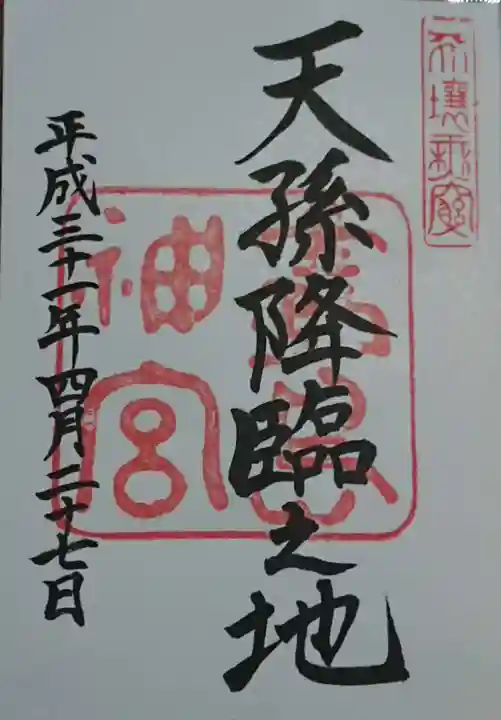 天壌無窮
天孫降臨之地
神宮
平成三十一年四月二十七日